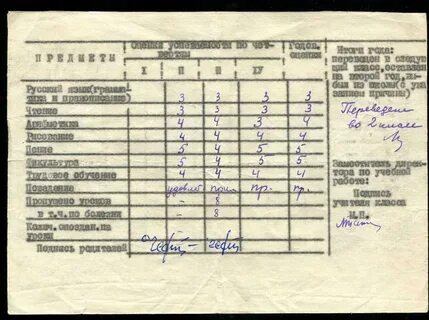 ПРЕДМЕТЫ
Оценки успеваемости по чет-
вертям
Годов.
оценки
I II III IV
Русский язык(грамма-
тика и правописание) 3 3 3 3
Чтение 3 3 3 3
Арифметика 4 4 3 4
Рисование 4 4 4 4
Пение 5 4 5 5
Физкультура 5 4 5 5
Трудовое обучение 4 4 4 4
Поведение удовл прим пр. пр.
Пропущено уроков 8
в т.ч. по болезни - 8
Колич. опоздан. на
уроки
Подпись родителей
Итоги года:
переведен в следую
щий класс, оставлен
на второй год, вы-
был из школы(с ука
занием причины)
Переведен
во 2 класс
Заместитель дирек-
тора по учебной
работе:
Подпись
учителя класса
М.П.